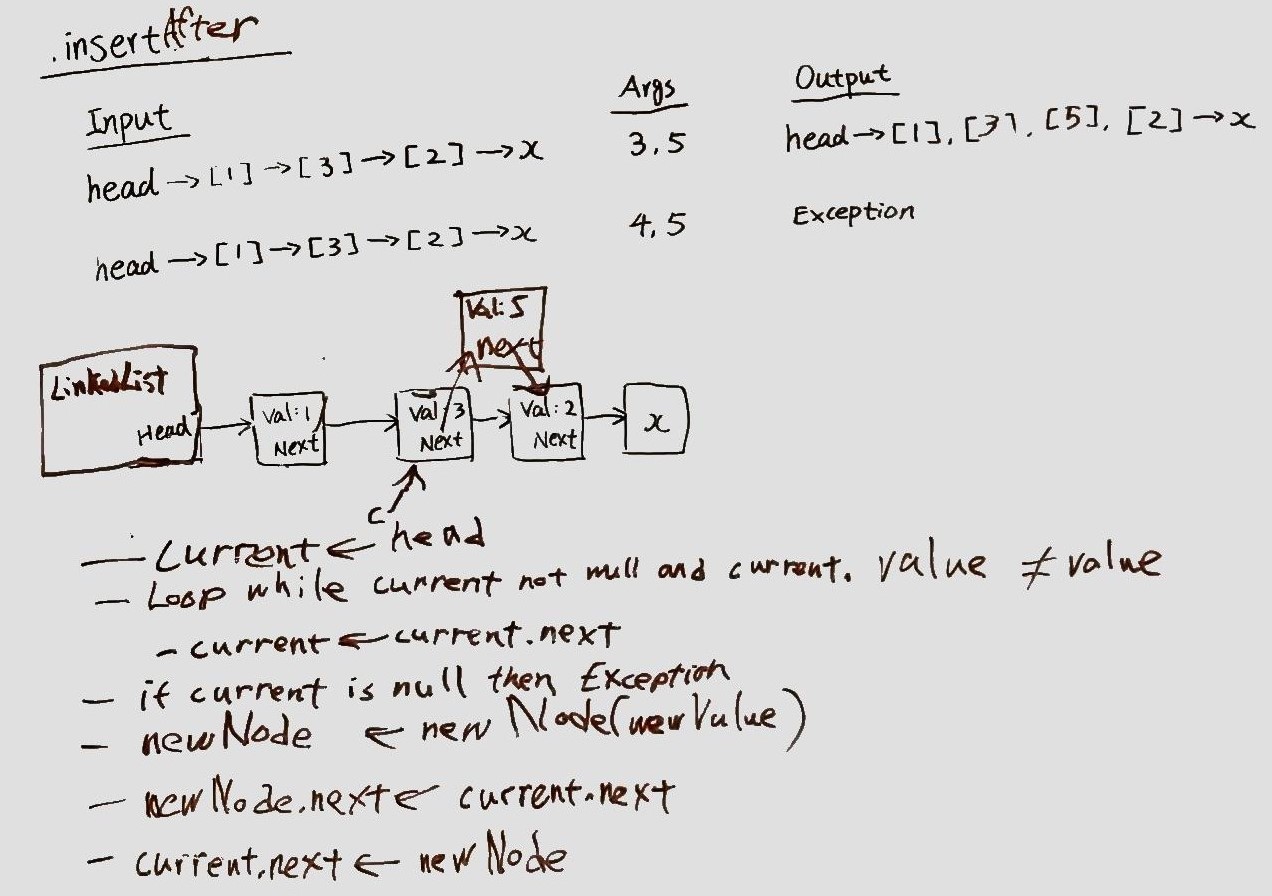 .insertAfter
Input Args Output
head→[1]→[3]→[2]→x 3,5 head→[1], [3], [5], [2]→x
head→[1]→[3]→[2]→x 4,5 Exception
Val: 5
next
LinkedList
Head
Val: 1
Next
Val: 3
Next
Val: 2
Next
x
c
— Current ← head
— Loop while current not null and current. value ≠ value
- current ← current.next
— if current is null then Exception
— newNode ← new Node(newValue)
— newNode.next ← current.next
— current.next ← newNode